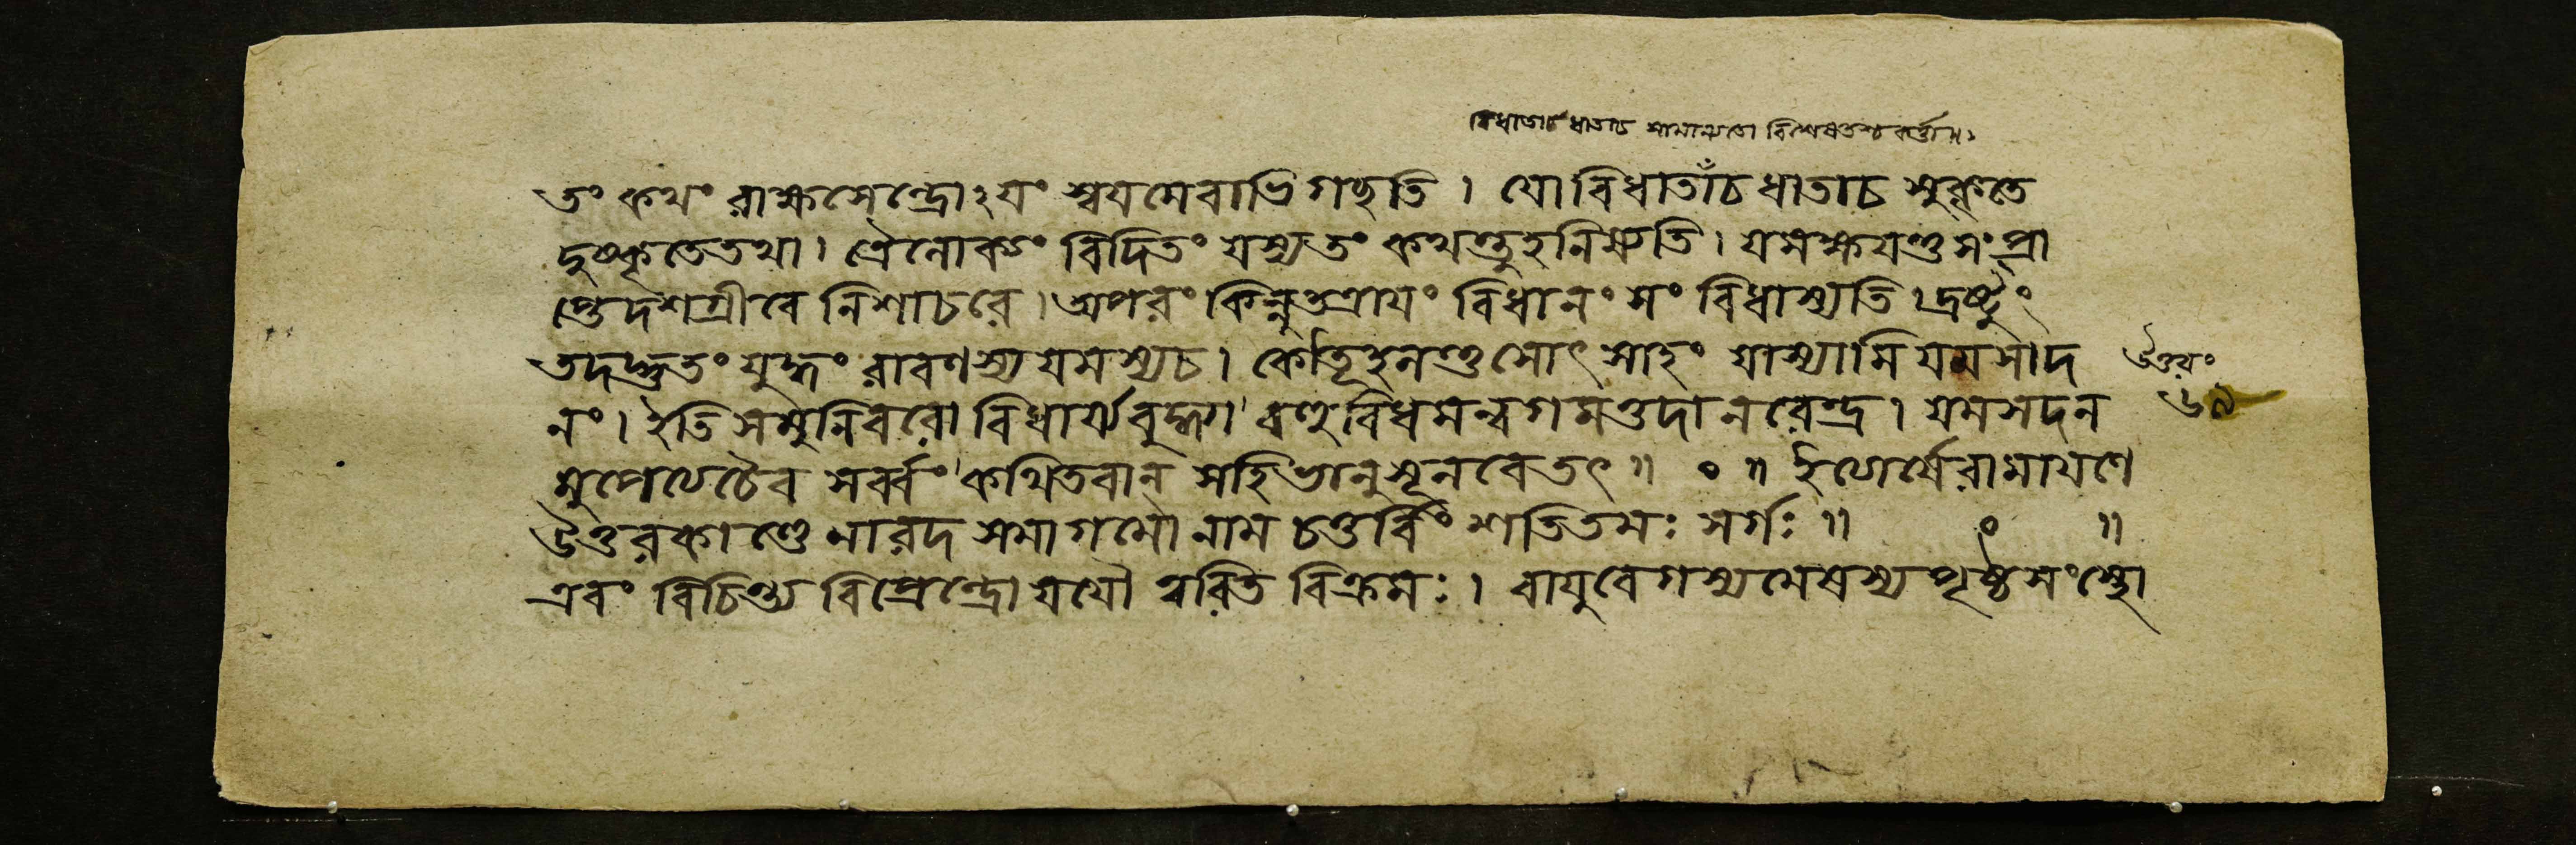 বিধাতাচ ধাতাচ সামান্যতো বিশেষতশ্চ কর্ত্তা॥
তং কথং রাক্ষসেন্দ্রোঽয়ং স্বয়মেবাভিগছতি। যো বিধাতাঁচ ধাতাচ সুকৃতে
দুষ্কৃতে তথা। ত্রৈলোক্যং বিদিতং যস্য তং কথন্তু হনিষ্যতি। যমক্ষয়ন্তু সংপ্রা
প্তে দশগ্রীবে নিশাচরে। অপরং কিন্নু তত্রায়ং বিধানং সং বিধাস্যতি। দ্রষ্টুং
তদদ্ভুতং যুদ্ধং রাবণস্য যমস্যচ। কৌতূহলাত্তু সোৎসাহং যাস্যামি যমসাদ
উত্তরং
নং। ইতি স মুনিবরো বিধার্য্য বুদ্ধ্যা বিধমন্বগমত্তদা নরেন্দ্র। যমসদন
৬৯
মুপেত্য চৈব সর্ব্বং কথিতবান্ সহি ভানুসূনবে তৎ॥ ০ ॥ ইত্যার্ষে রামায়ণে
উত্তরকাণ্ডে নারদ সমাগমো নাম চতুর্ব্বিংশতিতমঃ সর্গঃ॥ ০ ॥
এবং বিচিন্ত্য বিপ্রেন্দ্রো যযৌ ত্বরিত বিক্রমঃ। বায়ুবেগস্য মেষস্য পৃষ্ঠ সংস্থো